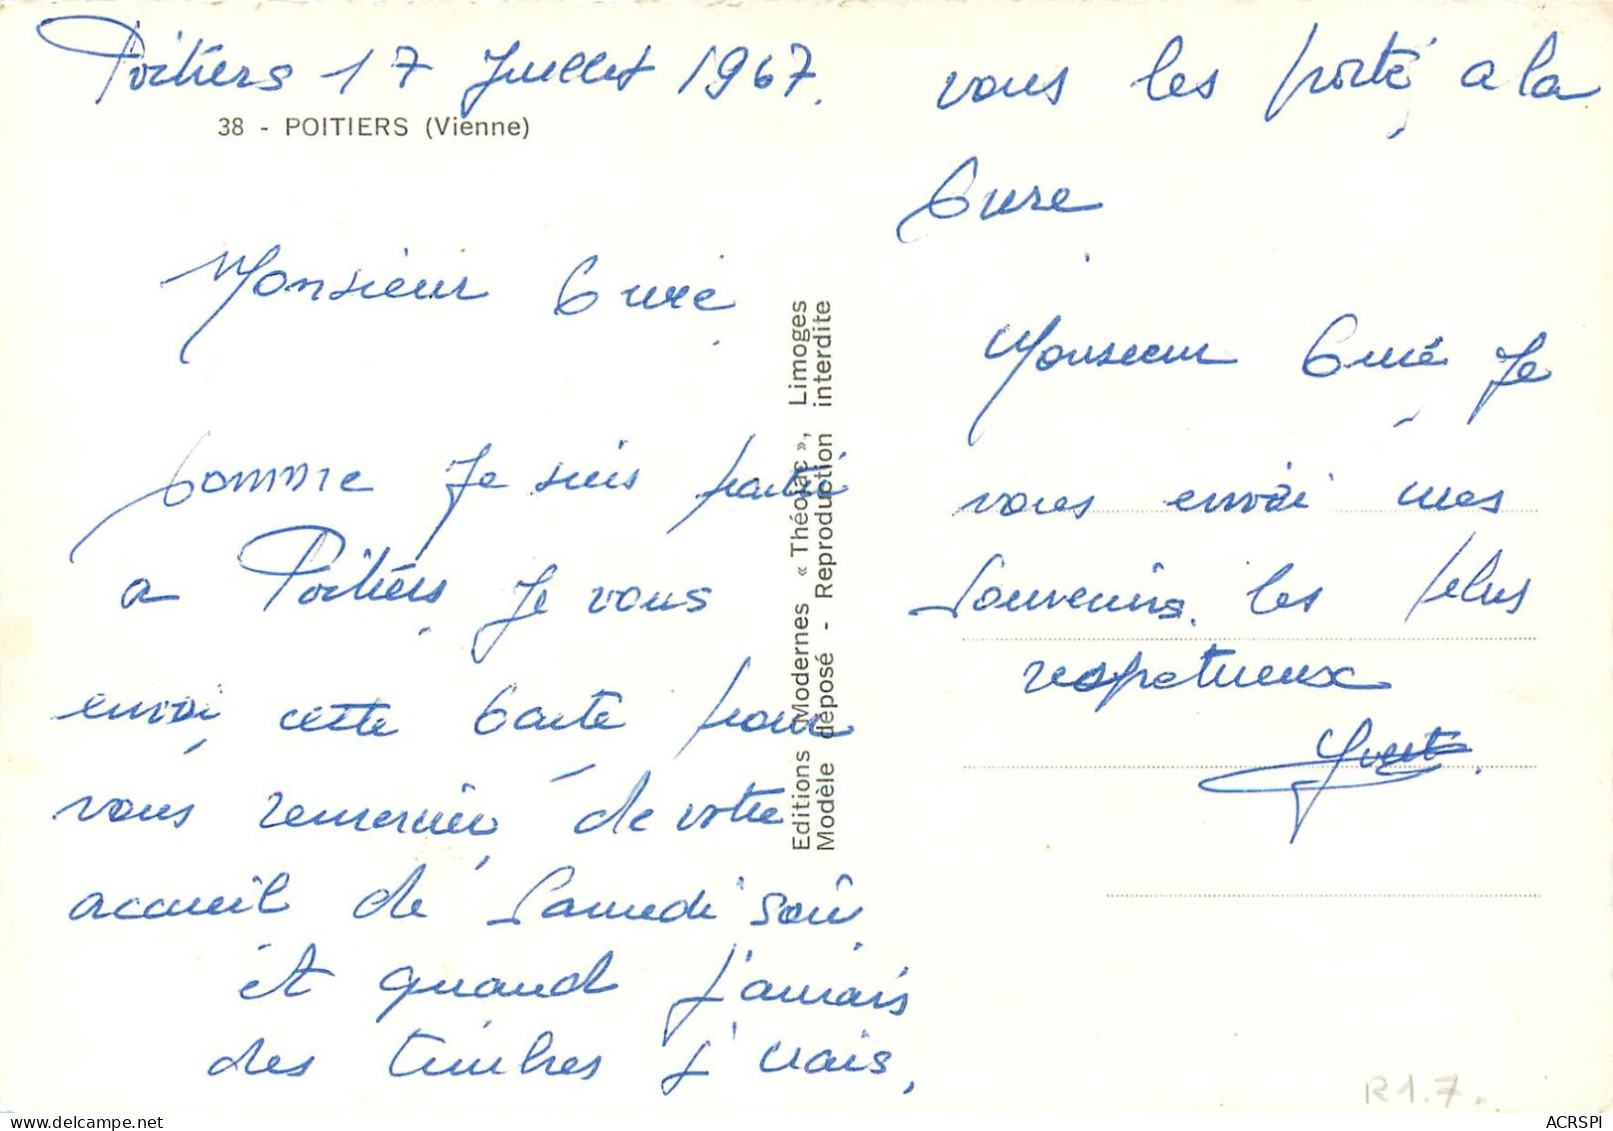 Poitiers 17 Juillet 1967.
38 - POITIERS (Vienne)
Monsieur Curé
Comme Je suis partié
a Poitiérs Je vous
envoi cette Carte pour
vous remerciér de votre
accueil de Samedi soir
et quand j'aurais
des timbres j'irais,
Editions Modernes « Théojac », Limoges
Modèle déposé - Reproduction interdite
vous les porté a la
Cure
Monsieur Curé Je
vous envoi mes
Souvenirs les plus
respetueux
R1.7.
ACRSPI